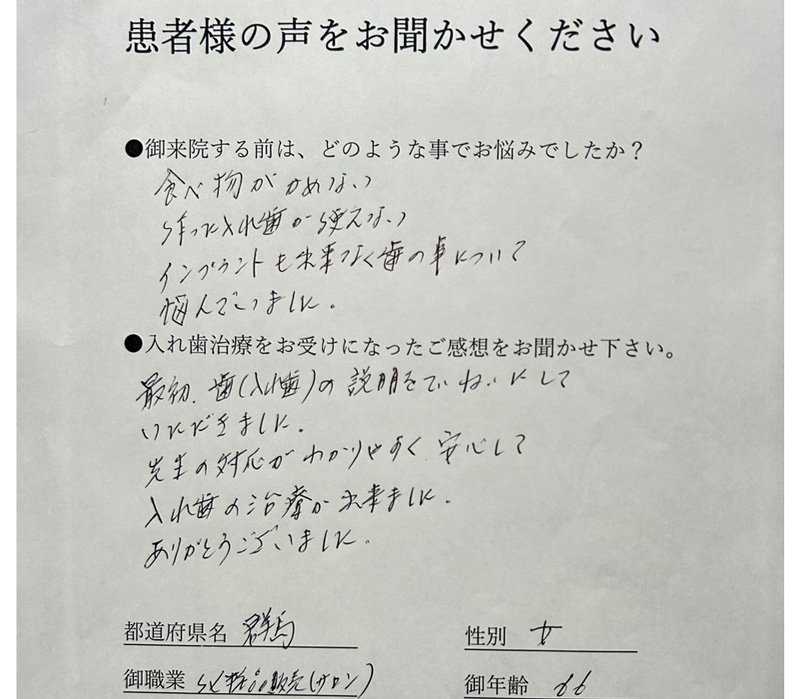 患者様の声をお聞かせください
●御来院する前は、どのような事でお悩みでしたか？
食べ物がかめない
作った入れ歯が使えない
インプラントも出来なく歯の事について
悩んでいました。
●入れ歯治療をお受けになったご感想をお聞かせ下さい。
最初、歯(入れ歯)の説明をていねいにして
いただきました。
先生の対応がわかりやすく安心して
入れ歯の治療が出来ました。
ありがとうございました。
都道府県名 群馬
性別 女
御職業 化粧品販売(サロン)
御年齢 66